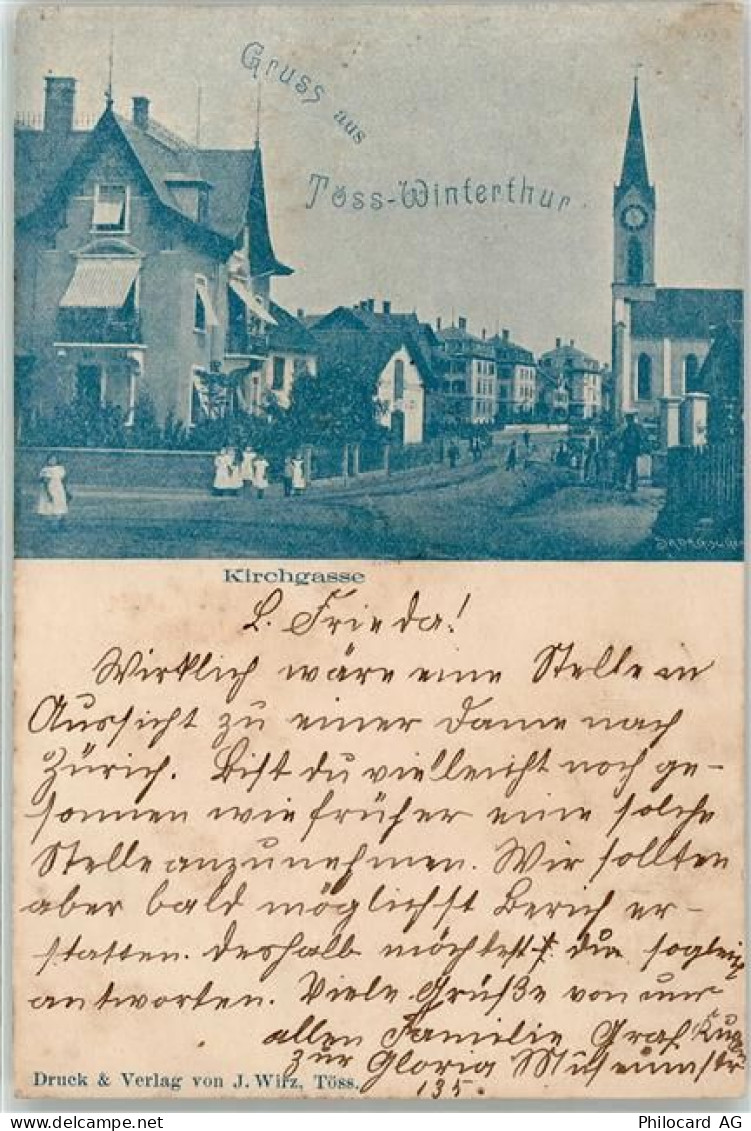 Gruss aus
Töss-Winterthur
Kirchgasse
L. Frieda!
Wirklich wäre eine Stelle in
Aussicht zu einer Dame nach
Zürich. Bist du vielleicht noch ge-
sonnen wie früher eine solche
Stelle anzunehmen. Wir sollten
aber bald möglichst Bericht er-
statten. Deshalb möchtest du sogleich
antworten. Viele Grüße von uns
allen Familie Graf
zur Gloria Museumstr
135.
Druck & Verlag von J. Wirz, Töss.
Philocard AG